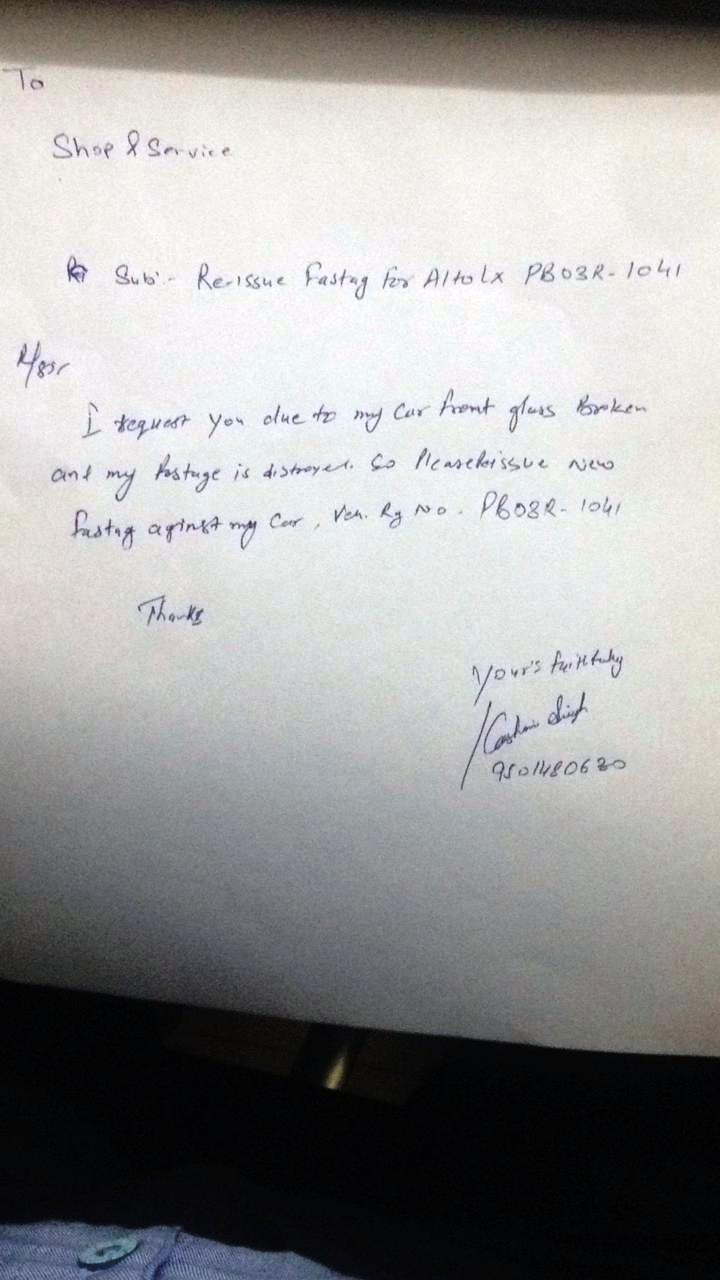 To
Shop & Service
Sub:- Re-issue Fastag for Alto Lx PB03R-1041
R/Sir
I request you due to my Car front glass Broken
and my fastage is distroyed. So Please Reissue New
fastag aginst my Car, Veh. Rg No. PB03R-1041
Thanks
Your's faithfully
Singh